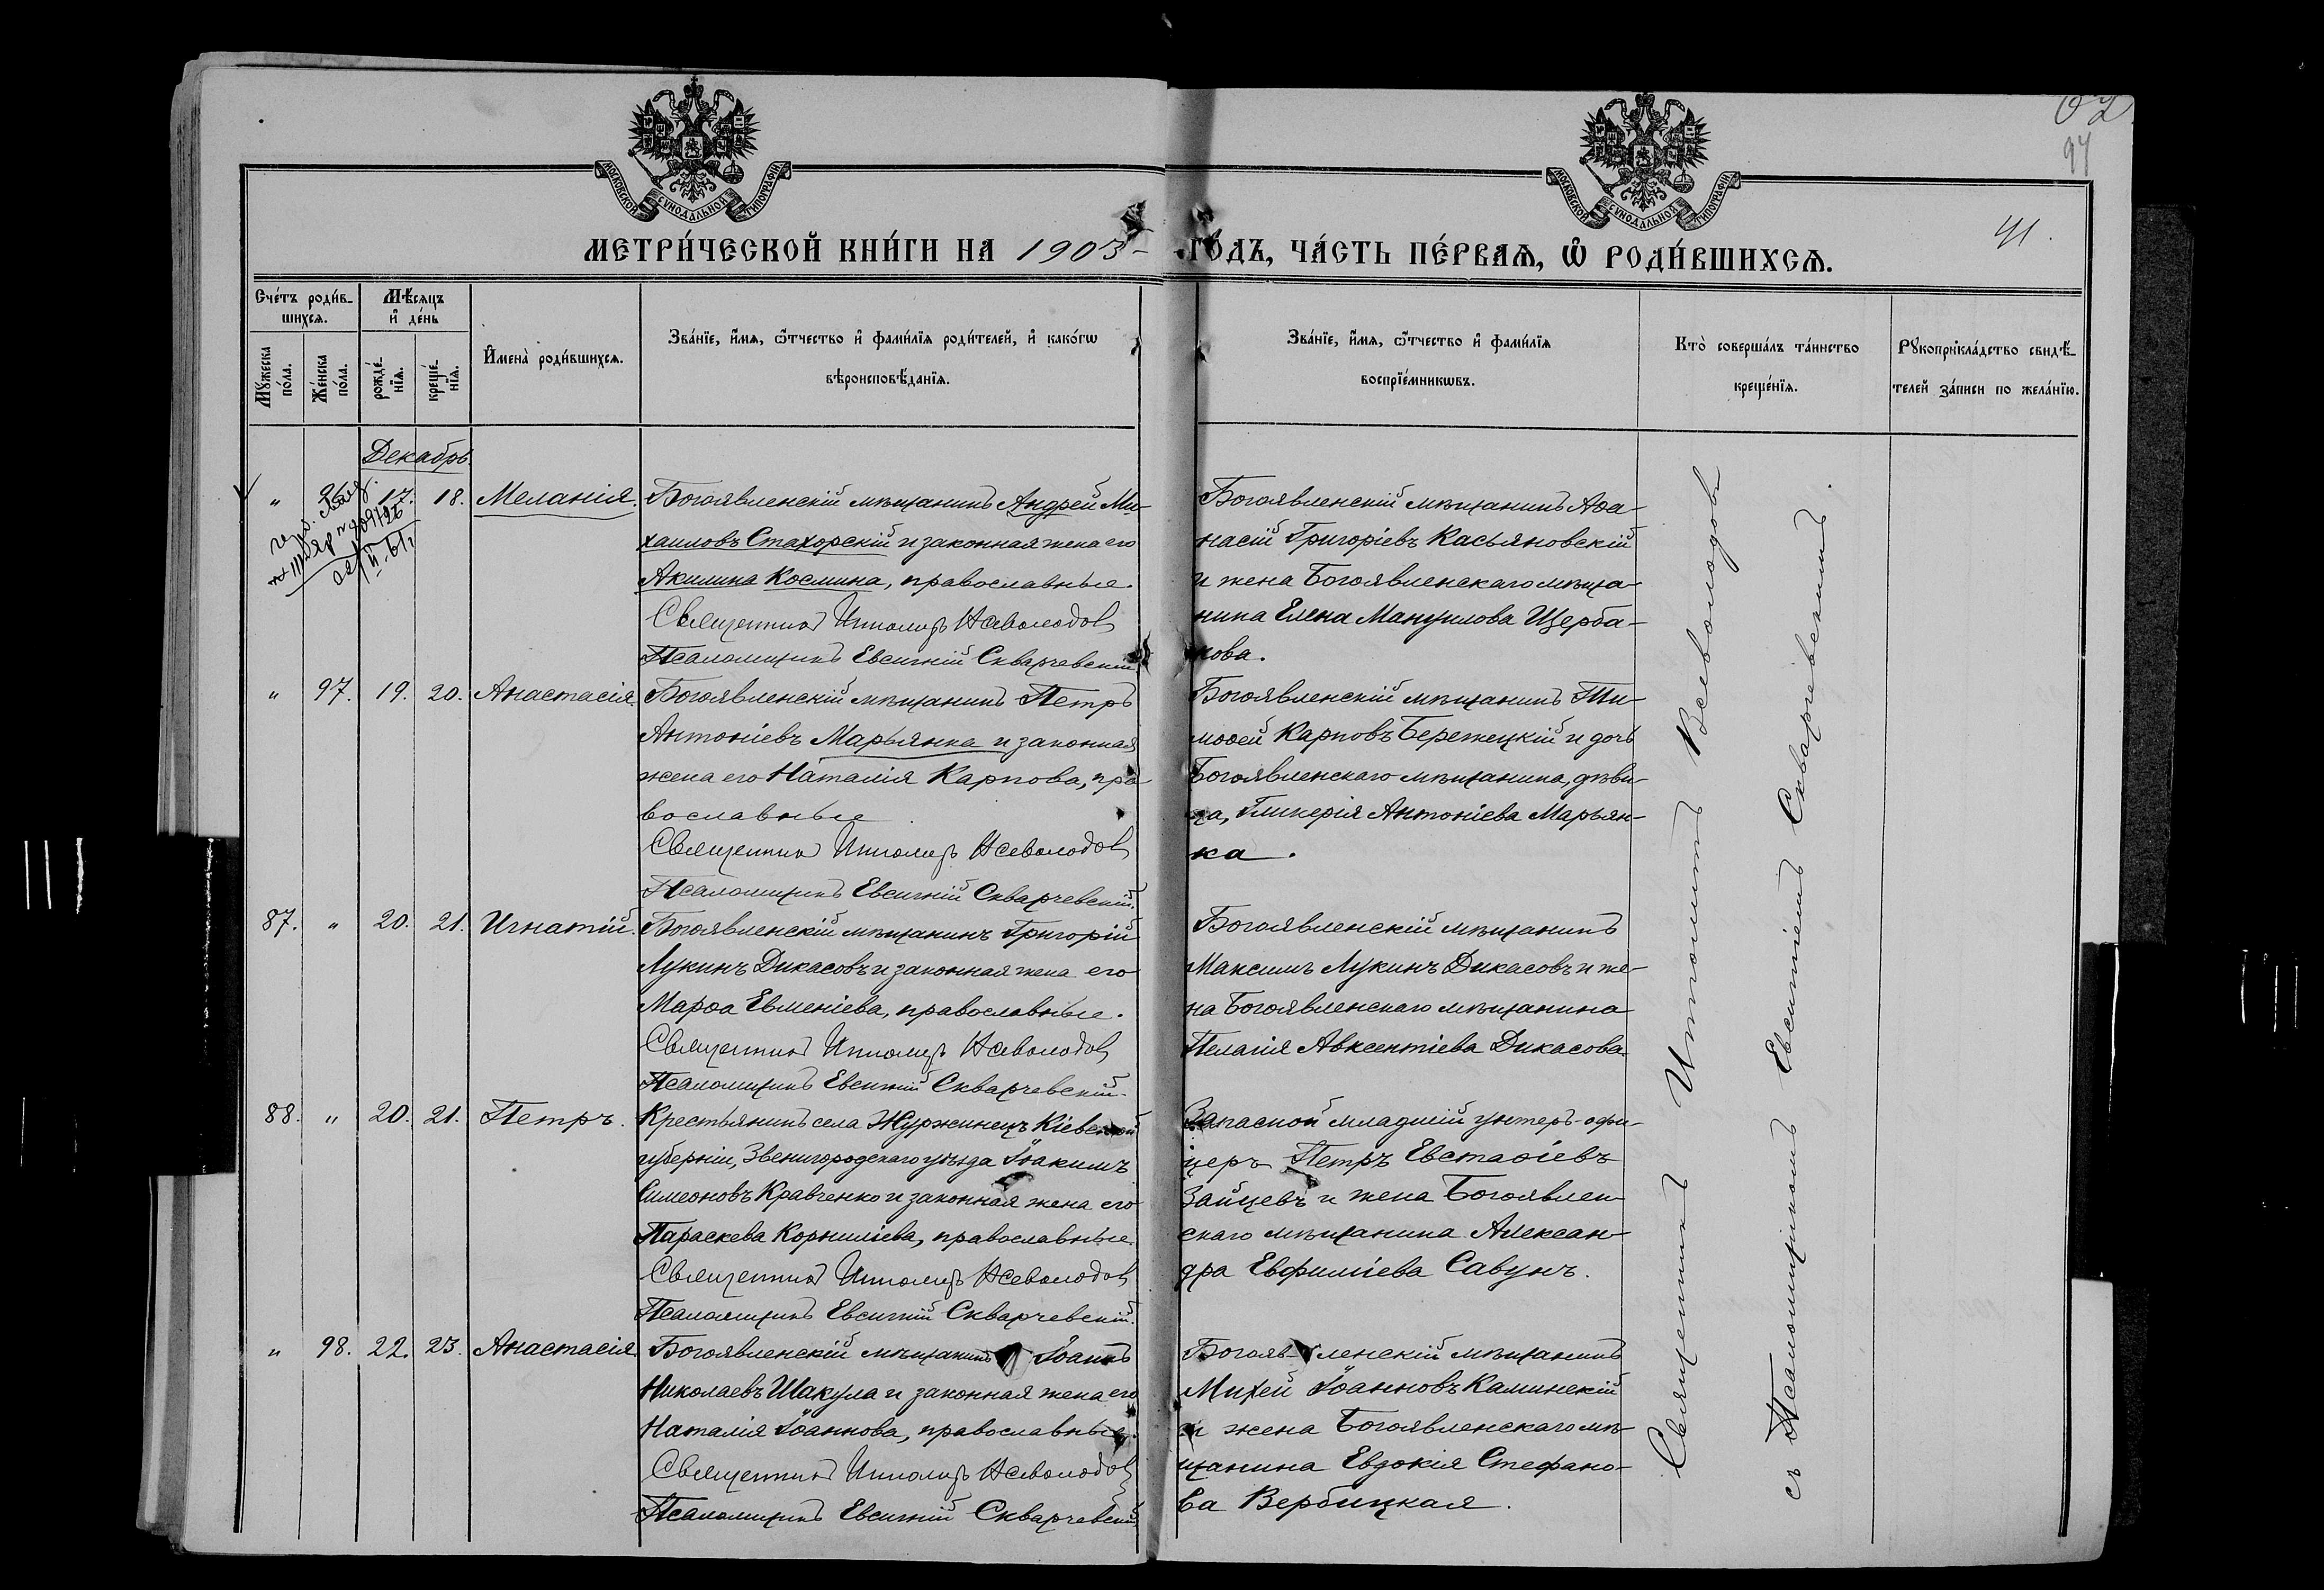 МОСКОВСКОЙ СѴНОДАЛЬНОЙ ТИПОГРАФІИ
МОСКОВСКОЙ СѴНОДАЛЬНОЙ ТИПОГРАФІИ
97
41.
МЕТРИ́ЧЕСКОЙ КНИ́ГИ НА 1903- ГО́ДЪ, ЧА́СТЬ ПЕ́РВАѦ, Ѡ҆ РОДИ́ВШИХСѦ.
Сче́тъ роди́в-
шихсѧ.
Мѣ́сѧцъ
и҆ де́нь
Мꙋ́жеска по́ла.
Же́нска по́ла.
рожде́нїѧ.
креще́нїѧ.
И҆мена̀ роди́вшихсѧ.
Зва́нїе, и҆́мѧ, ѻ҆́тчество и҆ фами́лїѧ роди́телей, и҆ како́гѡ
вѣроисповѣ́данїѧ.
Зва́нїе, и҆́мѧ, ѻ҆́тчество и҆ фами́лїѧ
воспрїе́мникѡвъ.
Кто̀ соверша́лъ та́инство
креще́нїѧ.
Рꙋкоприкла́дство свидѣ́-
телей за́писи по жела́нїю.
Декабрь.
" 96. 17. 18. Меланія.
Богоявленскій мѣщанинъ Андрей Ми-
хаиловъ Стахорскій и законная жена его
Акилина Космина, православные.
Священникъ Ипполитъ Всеволодовъ
Псаломщикъ Евсигній Скварчевскій
Богоявленскій мѣщанинъ Аѳа-
насій Григоріевъ Касьяновскій
и жена Богоявленскаго мѣща-
нина Елена Мануилова Щерба-
кова.
" 97. 19. 20. Анастасія.
Богоявленскій мѣщанинъ Петръ
Антоніевъ Марьянка и законная
жена его Наталія Карпова, пра-
вославные
Священникъ Ипполитъ Всеволодовъ
Псаломщикъ Евсигній Скварчевскій.
Богоявленскій мѣщанинъ Ти-
моѳей Карповъ Бережецкій и дочь
Богоявленскаго мѣщанина, дѣви-
ца, Гликерія Антоніева Марьян-
ка.
87. " 20. 21. Игнатій.
Богоявленскій мѣщанинъ Григорій
Лукинъ Дикасовъ и законная жена его
Марѳа Евменіева, православные.
Священникъ Ипполитъ Всеволодовъ
Псаломщикъ Евсигній Скварчевскій.
Богоявленскій мѣщанинъ
Максимъ Лукинъ Дикасовъ и же-
на Богоявленскаго мѣщанина
Пелагія Авксентіева Дикасова.
88. " 20. 21. Петръ.
Крестьянинъ села Журжинецъ Кіевской
губерніи, Звенигородскаго уѣзда Іоакимъ
Симеоновъ Кравченко и законная жена его
Параскева Корниліева, православные.
Священникъ Ипполитъ Всеволодовъ
Псаломщикъ Евсигній Скварчевскій.
Запасной младшій унтеръ-офи-
церъ Петръ Евстаѳіевъ
Зайцевъ и жена Богоявлен-
скаго мѣщанина Алексан-
дра Евфиміева Савунъ.
" 98. 22. 23. Анастасія.
Богоявленскій мѣщанинъ Іоаннъ
Николаевъ Шакула и законная жена его
Наталія Іоаннова, православные.
Священникъ Ипполитъ Всеволодовъ
Псаломщикъ Евсигній Скварчевскій
Богоявленскій мѣщанинъ
Михей Іоанновъ Каминскій
и жена Богоявленскаго мѣ-
щанина Евдокія Стефано-
ва Вербицкая.
Священникъ Ипполитъ Всеволодовъ
съ Псаломщикомъ Евсигніемъ Скварчевскимъ.